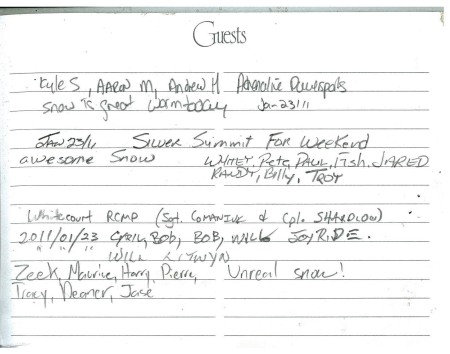 Guests
Kyle S, AARON M, Andrew H Adrenaline Powersports
Snow is great warm today Jan-23/11
JAN 23/11 Silver Summit For Weekend
awesome Snow WHITEY, Pete, PAUL, Fish, JARED
RANDY, Billy, TROY
Whitecourt RCMP (Sgt. COMANIUK & Cpl. SHARDLOW)
2011/01/23 Bob, BOB, WILL JOYRIDE.
" " " WILL LITWYN
Zeek, Maurice, Harry, Pierre, Unreal snow!
Tracy, Deaner, Jase